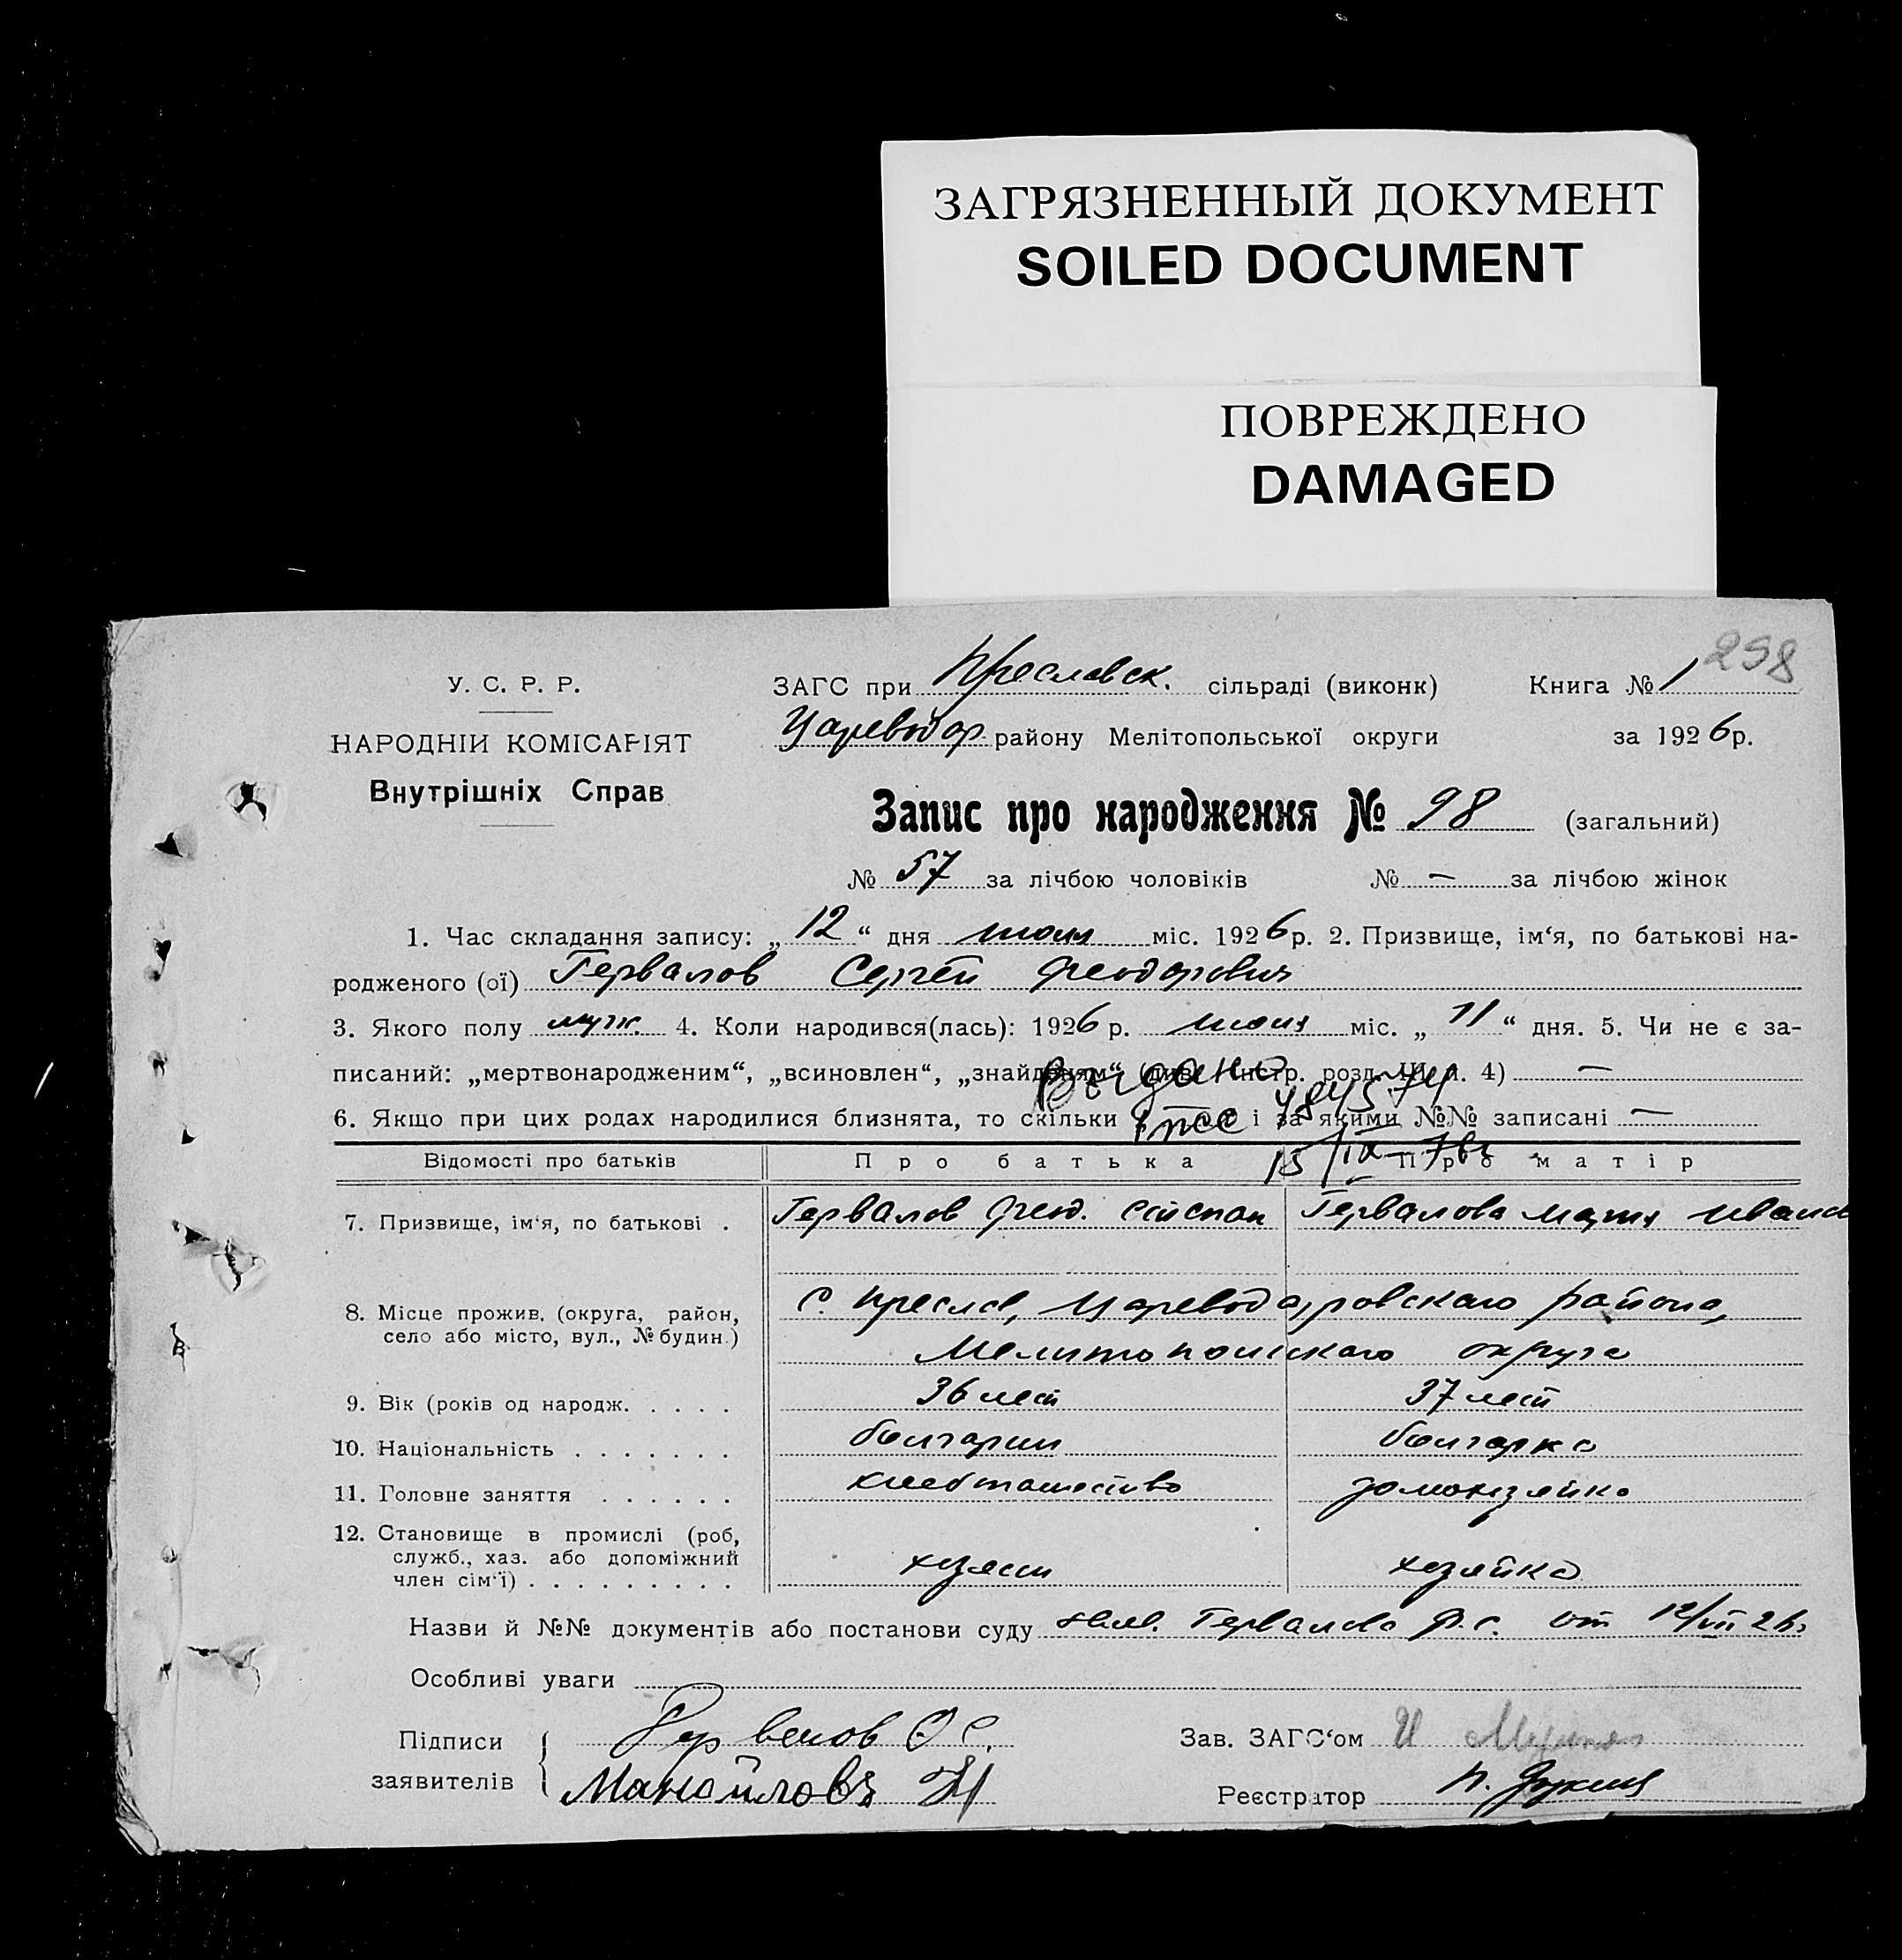 ЗАГРЯЗНЕННЫЙ ДОКУМЕНТ
SOILED DOCUMENT
ПОВРЕЖДЕНО
DAMAGED
298
У. С. Р. Р.
НАРОДНІЙ КОМІСАРІЯТ
Внутрішніх Справ
ЗАГС при Преславск. сільраді (виконк) Книга № 1
Цареводар районy Мелітопольської округи за 1926 р.
Запис про народження № 98 (загальний)
№ 57 за лічбою чоловіків № — за лічбою жінок
1. Час складання запису: „12“ дня июля міс. 1926 р. 2. Призвище, ім‘я, по батькові на-
родженого (ої) Гервалов Сергей Феодорович
3. Якого полу муж. 4. Коли народився(лась): 1926 р. июля міс. „11“ дня. 5. Чи не є за-
писаний: „мертвонародженим“, „всиновлен“, „знайденям“ (див. інстр. розд. IV п. 4) —
6. Якщо при цих родах народилися близнята, то скільки і за якими №№ записані —
Выдано
15/IX—76г
Відомості про батьків Про батька Про матір
7. Призвище, ім‘я, по батькові . Гервалов Феод. Степан Гервалова Мария Иван
8. Місце прожив. (округа, район,
село або місто, вул., № будин.)
с. Преслав, Цареводаровскаго района,
Мелитопольскаго округа
9. Вік (років од народж. . . . . 36 лет 37 лет
10. Національність . . . . . . . болгарин болгарка
11. Головне заняття . . . . . . хлебопашество домохозяйка
12. Становище в промислі (роб,
служб., хаз. або допоміжний
член сім‘ї) . . . . . . . . . хозяин хозяйка
Назви й №№ документів або постанови суду заяв. Гервалова Ф. С. от 12/VII 26г
Особливі уваги
Підписи
заявителів
Гервалов Ф С.
Манойловъ Н
Зав. ЗАГС‘ом И
Реєстратор